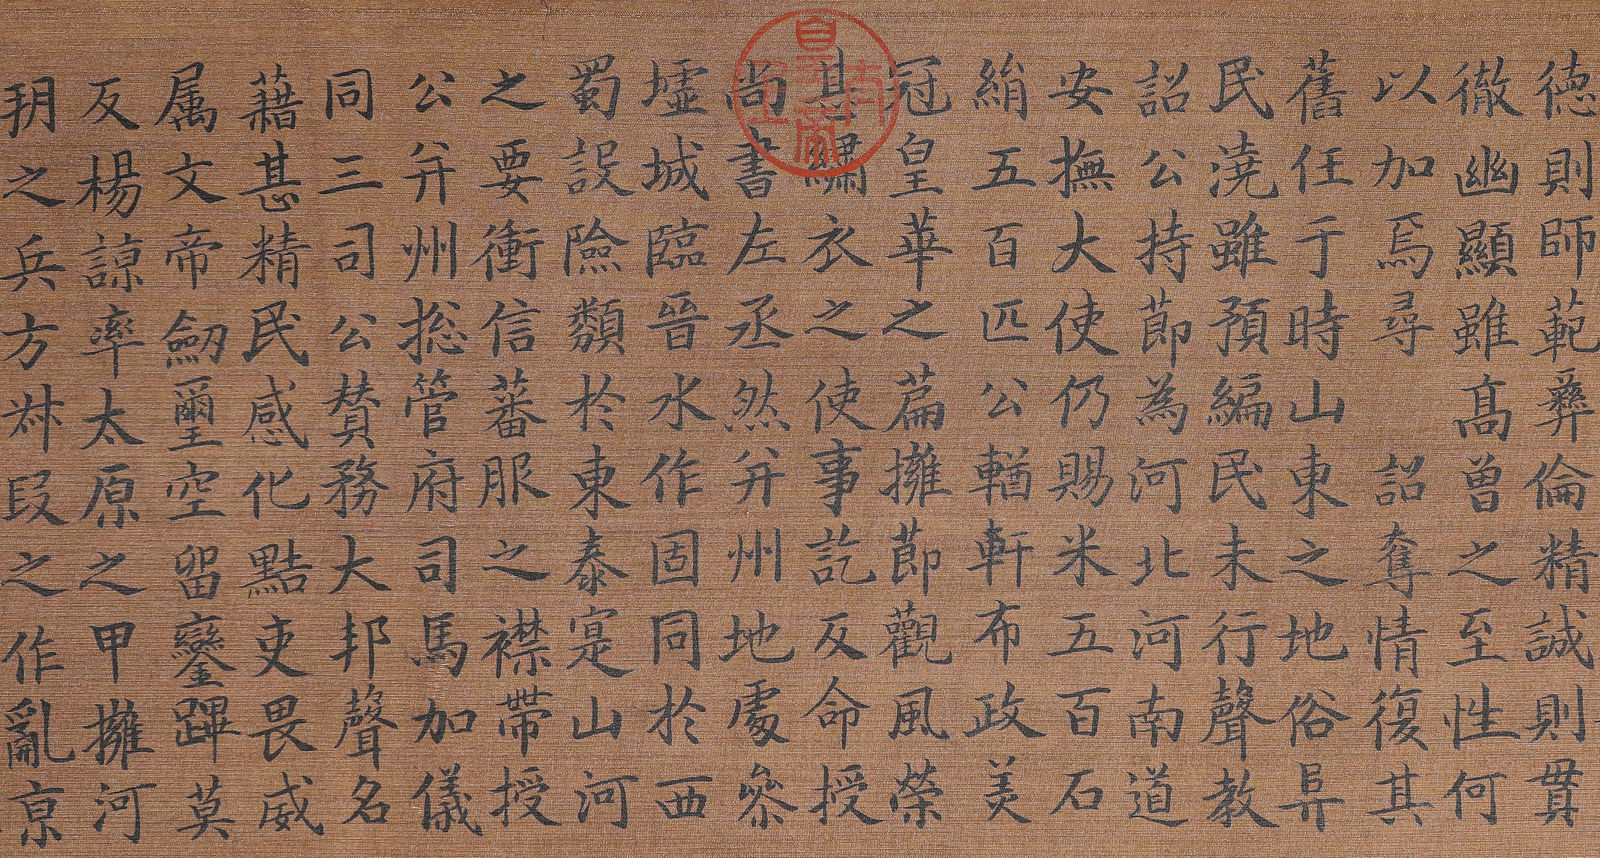 德則師範彝倫精誠則貫
徹幽顯雖高曾之至性何
以加焉尋 詔奪情復其
舊任于時山東之地俗阜
民澆雖預編民未行聲教
詔公持節為河北河南道
安撫大使仍賜米五百石
絹五百匹公輶軒布政美
冠皇華之篇擁節觀風榮
甚繡衣之使事訖反命授
尚書左丞然并州地處參
墟城臨晉水作固同於西
蜀設險類於東泰寔山河
之要衝信蕃服之襟帶授
公并州揔管府司馬加儀
同三司公贊務大邦聲名
藉甚精民感化黠吏畏威
属文帝劒璽空留鑾蹕莫
反楊諒率太原之甲擁河
朔之兵方叔段之作亂京